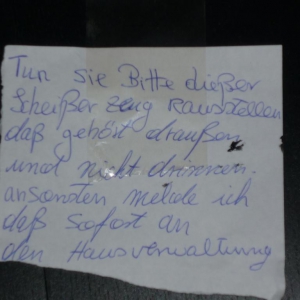 Tun sie Bitte dießer
Scheißer zeug Rausstellen
daß gehört draußen
und nicht drinnen.
ansonsten melde ich
daß sofort an
den Hausverwaltung